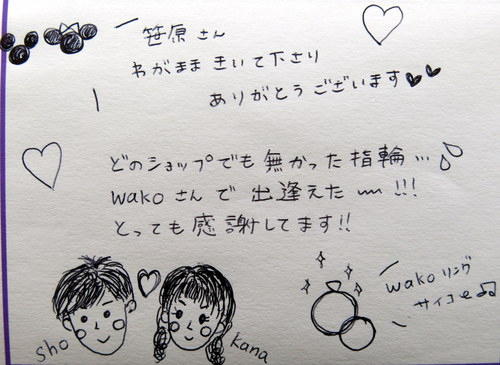 笹原さん
わがままきいて下さり
ありがとうございます♥♥
どのショップでも無かった指輪…
wakoさんで出逢えた〜!!!
とっても感謝してます!!
wakoリング
サイコー♫
sho
kana